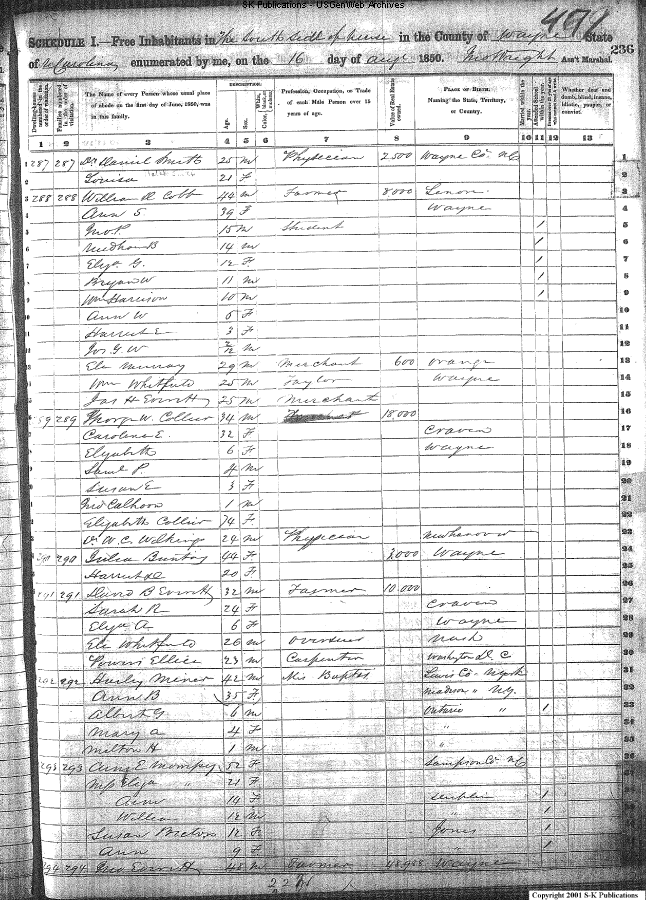 SK Publications - USGenWeb Archives
497
SCHEDULE I.—Free Inhabitants in The South Side of Neuse in the County of Wayne State
of N Carolina enumerated by me, on the 16 day of Augt 1850. Jno Wright Ass't Marshal. 236
Dwelling-houses numbered in the order of visitation.
Families numbered in the order of visitation.
The Name of every Person whose usual place of abode on the first day of June, 1850, was in this family.
DESCRIPTION.
Age.
Sex.
Color,
Profession, Occupation, or Trade of each Male Person over 15 years of age.
Value of Real Estate owned.
PLACE OF BIRTH. Naming the State, Territory, or Country.
Married within the year.
Attended School within the year.
Whether deaf and dumb, blind, insane, idiotic, pauper, or convict.
1 2 3 4 5 6 7 8 9 10 11 12 13
287 287 Dr Daniel Smith 25 M Physician 2500 Wayne Co. NC 1
Louisa 21 F
3 288 288 William R Cobb 44 M Farmer 8000 Lenoir 3
Ann S 39 F Wayne 4
Jno P. 15 M Student 1 5
Needham B 14 M 1 6
Eliza G. 12 F 1 7
Bryan W 11 M 1 8
Wm Harrison 10 M 1 9
Ann W 5 F 10
Harriet E 3 F 11
Jos G. W 12 M 12
Eli Murray 29 M Merchant 600 Orange 13
Wm Whitfield 25 M Taylor Wayne 14
Jas H Everitt 25 M Merchant 15
289 George W. Collier 34 M 18.000 16
Caroline E. 32 F Craven 17
Elizabeth 6 F Wayne 18
Saml P. 4 M 19
Susan E 3 F 20
Jno Calhoon 1 M 21
Elizabeth Collier 74 F
Dr W. C. Wilkings 24 M Physician New Hanover
290 Julia Bunting 44 F 3,000 Wayne 24
Harriet 20 F
291 291 David B Everitt 32 M Farmer 10.000 26
Sarah R 24 F Craven 27
Eliza A 6 F Wayne 28
Eli Whitfield 26 M Overseer Nash 29
Ellice 23 M Carpenter Washington D. C 30
292 Hurley Miner 42 M Mis Baptist Lewis Co. NYork 31
Ann B 35 F Madison " NY.
Albert G 6 M Ontario " 1
Mary A 4 F "
Milton H 1 M "
293 293 52 F Sampson Co NC
Eliza " 21 F
Ann 14 F Duplin 1
William 12 M " 1
Susan 12 F Jones 1
Ann 9 F 1
294 294 Jno Everitt 48 M Farmer Wayne
Copyright 2001 S-K Publications